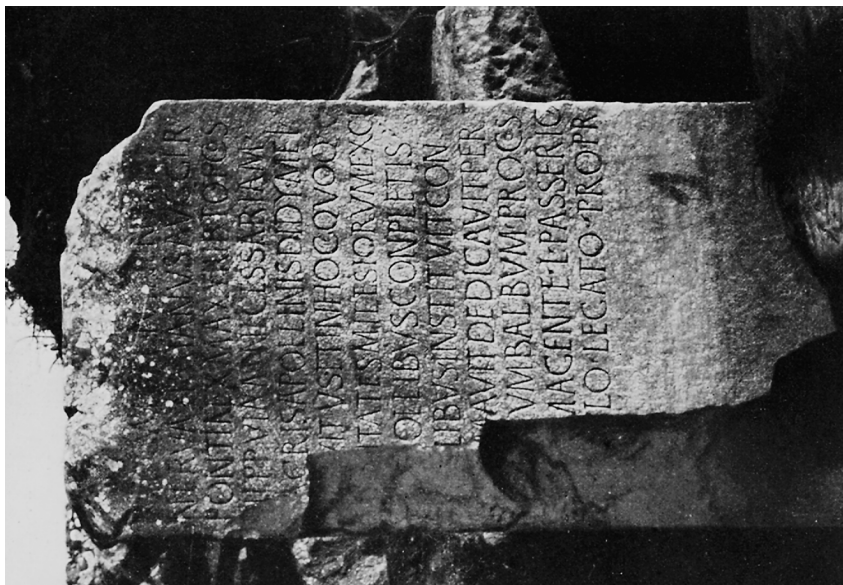 NERVA TRAIANVS AVG GER
PONTIFEX MAX TRIB POT COS
IIII P P VIAM NECESSARIAM
CRIS APOLLINIS DIDYMEI
ITVS ET IN HOC QVOQ
TATES MILESIORVM EXCI
OLLIBVS CONPLETIS
LIBVS INSTITVIT CON
AVIT DEDICAVIT PER
VM BALBVM PROCOS
M AGENTE L PASSERIO
LO LEGATO PRO PR